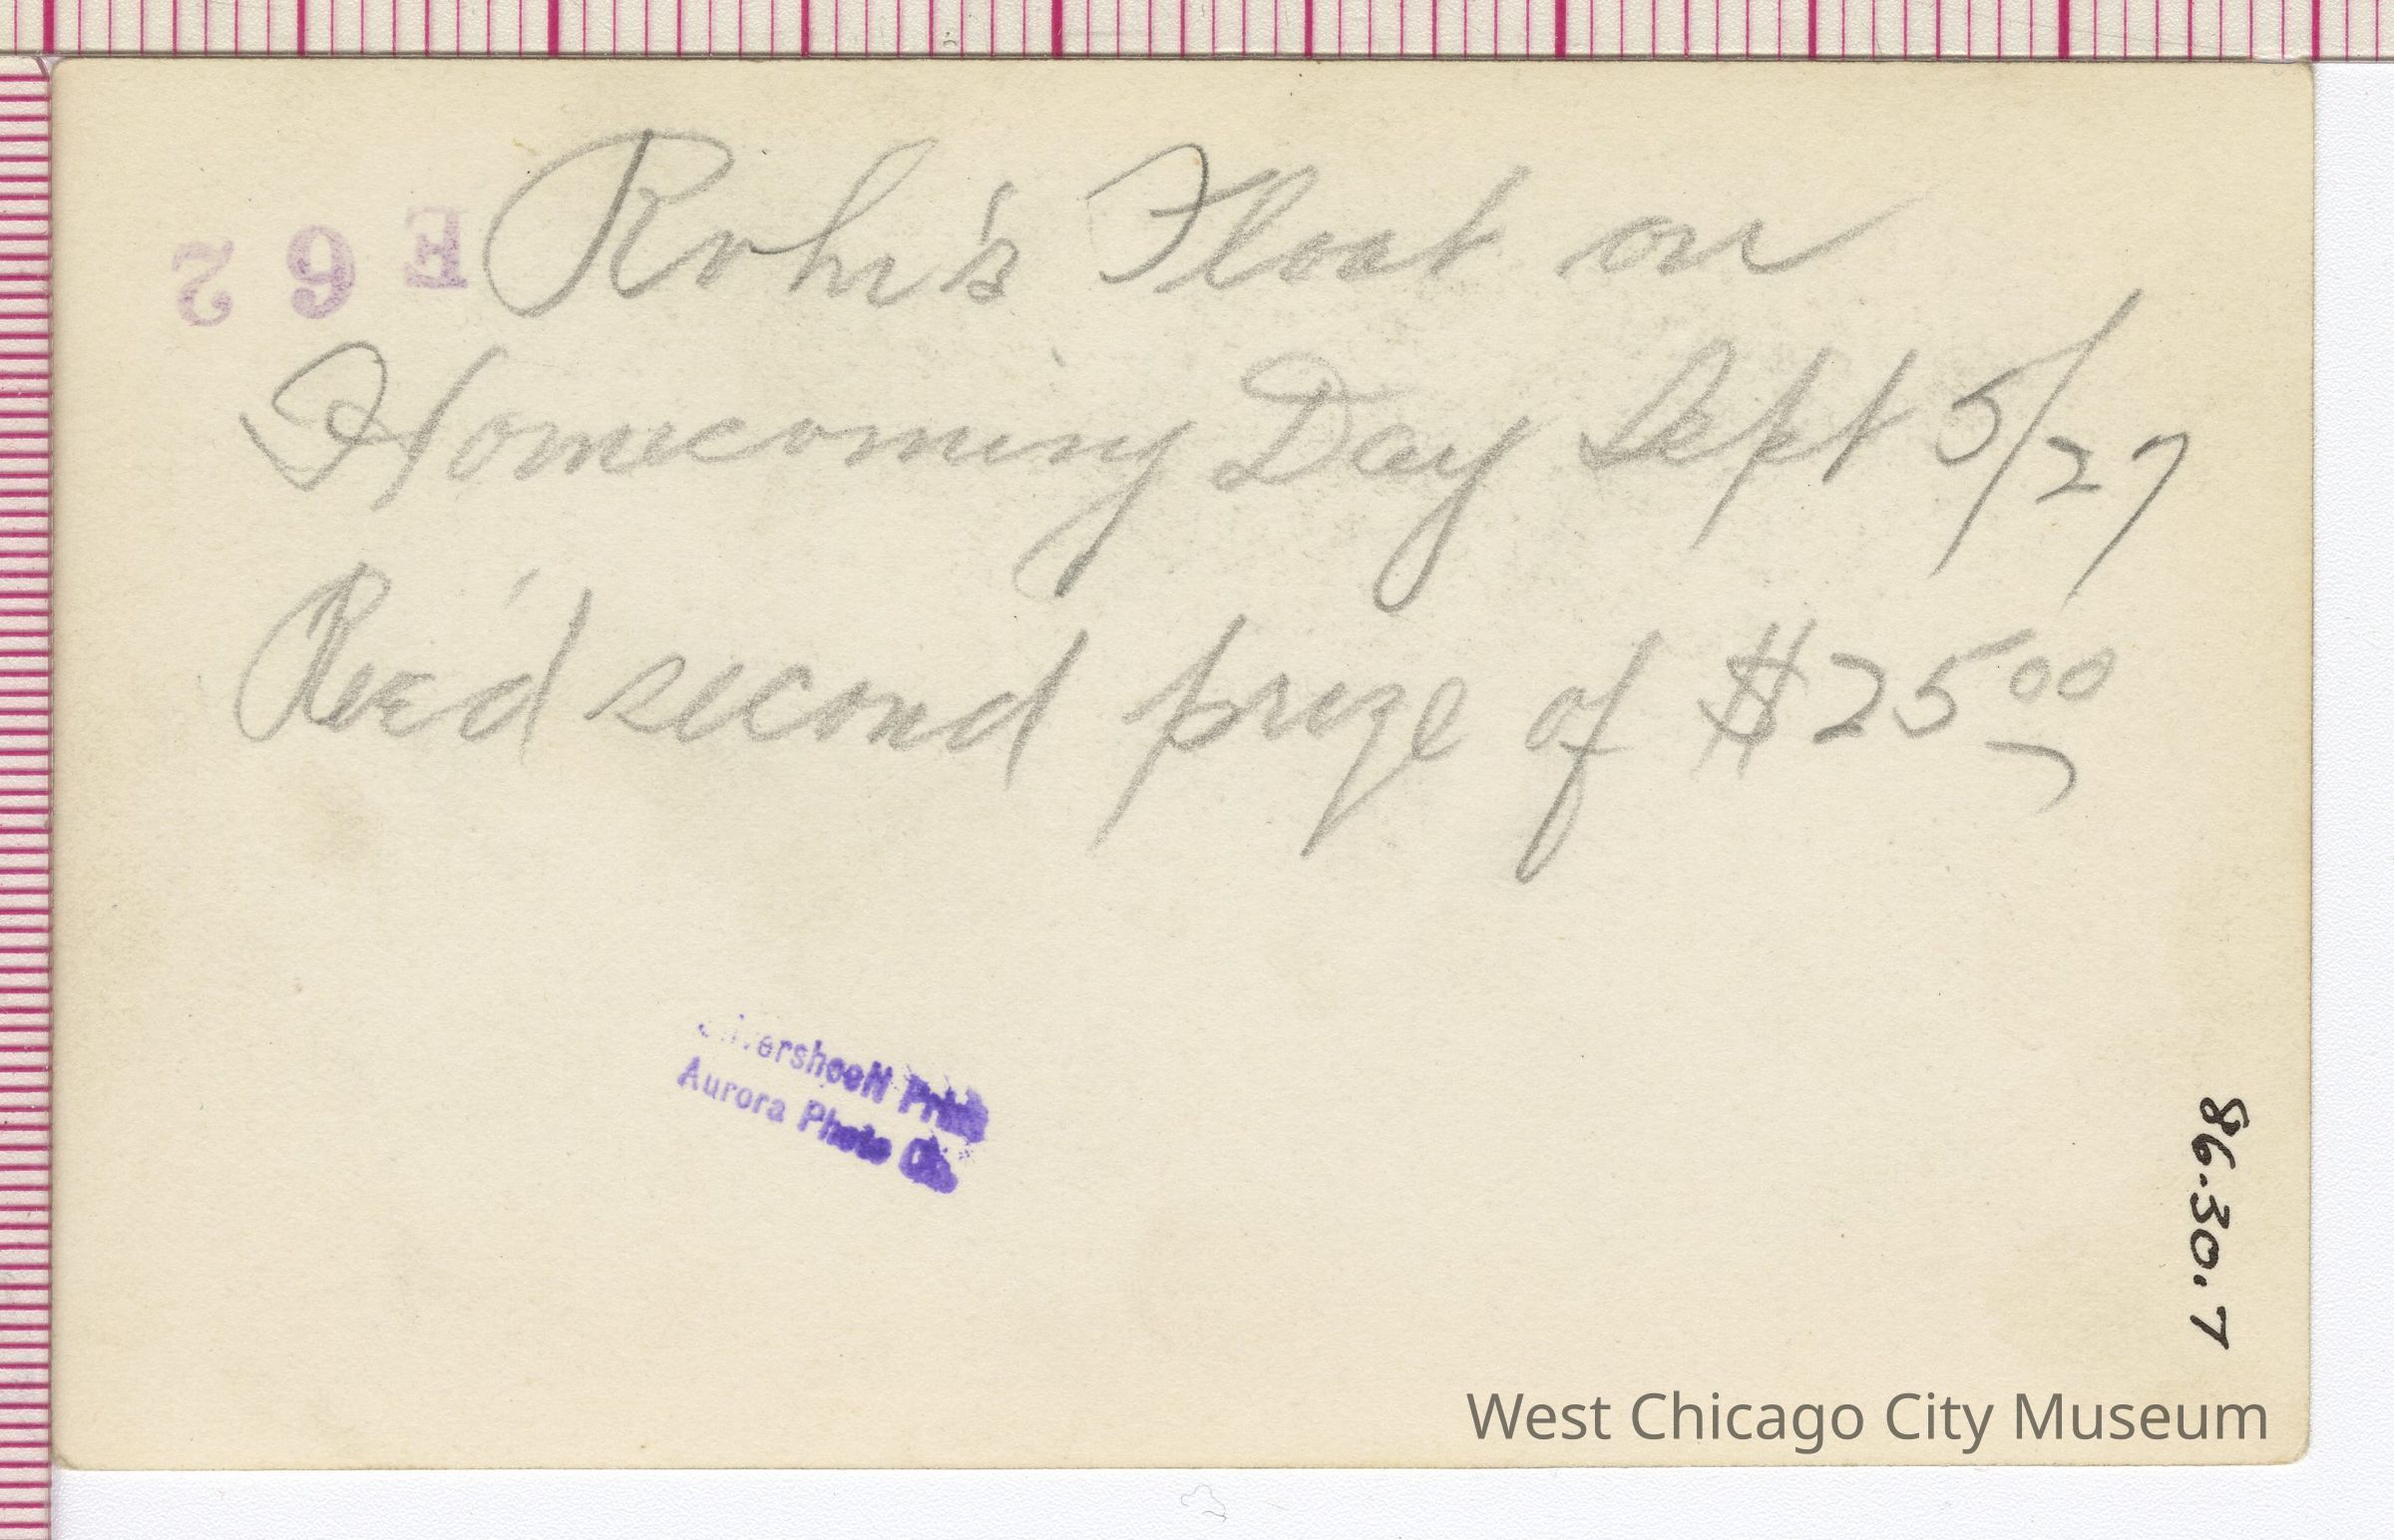 Rohr's Float on
Homecoming Day Sept 5/27
Rec'd second prize of $25 00
E 6 2
Aurora Photo Co.
86.30.7
West Chicago City Museum